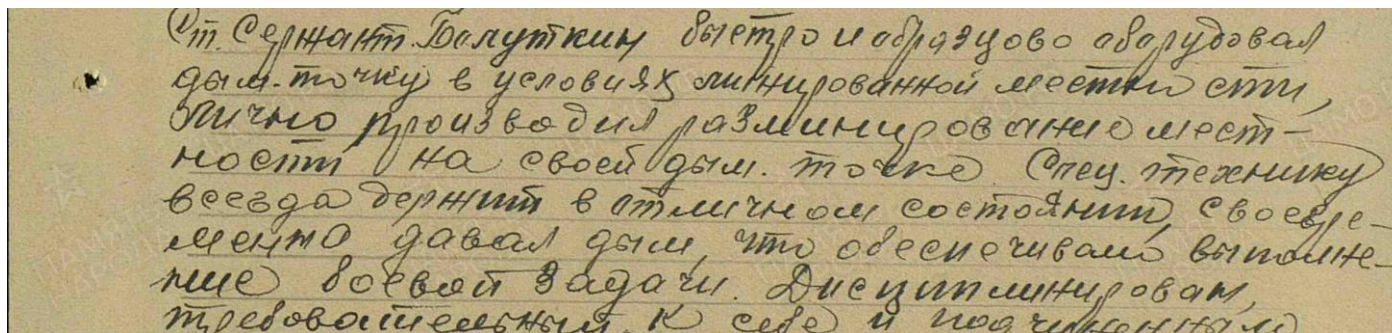 Ст. Сержант Болуткин быстро и образцово оборудовал
дым. точку в условиях минированной местности,
Лично производил разминирование мест-
ности на своей дым. точке. Спец. технику
всегда держит в отличном состоянии, своевре-
менно давал дым, что обеспечивало выполне-
ние боевой задачи. Дисциплинирован,
требовательный к себе и подчиненным